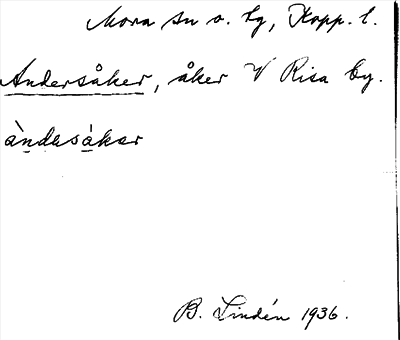 Mora sn o. tg, Kopp. l.
Andersåker, åker V Risa by.
àndesàker
B. Lindén 1936.